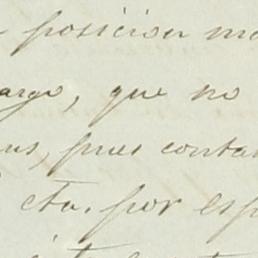 posicion ma
argo, que no
us, pues conta
cta. por esp